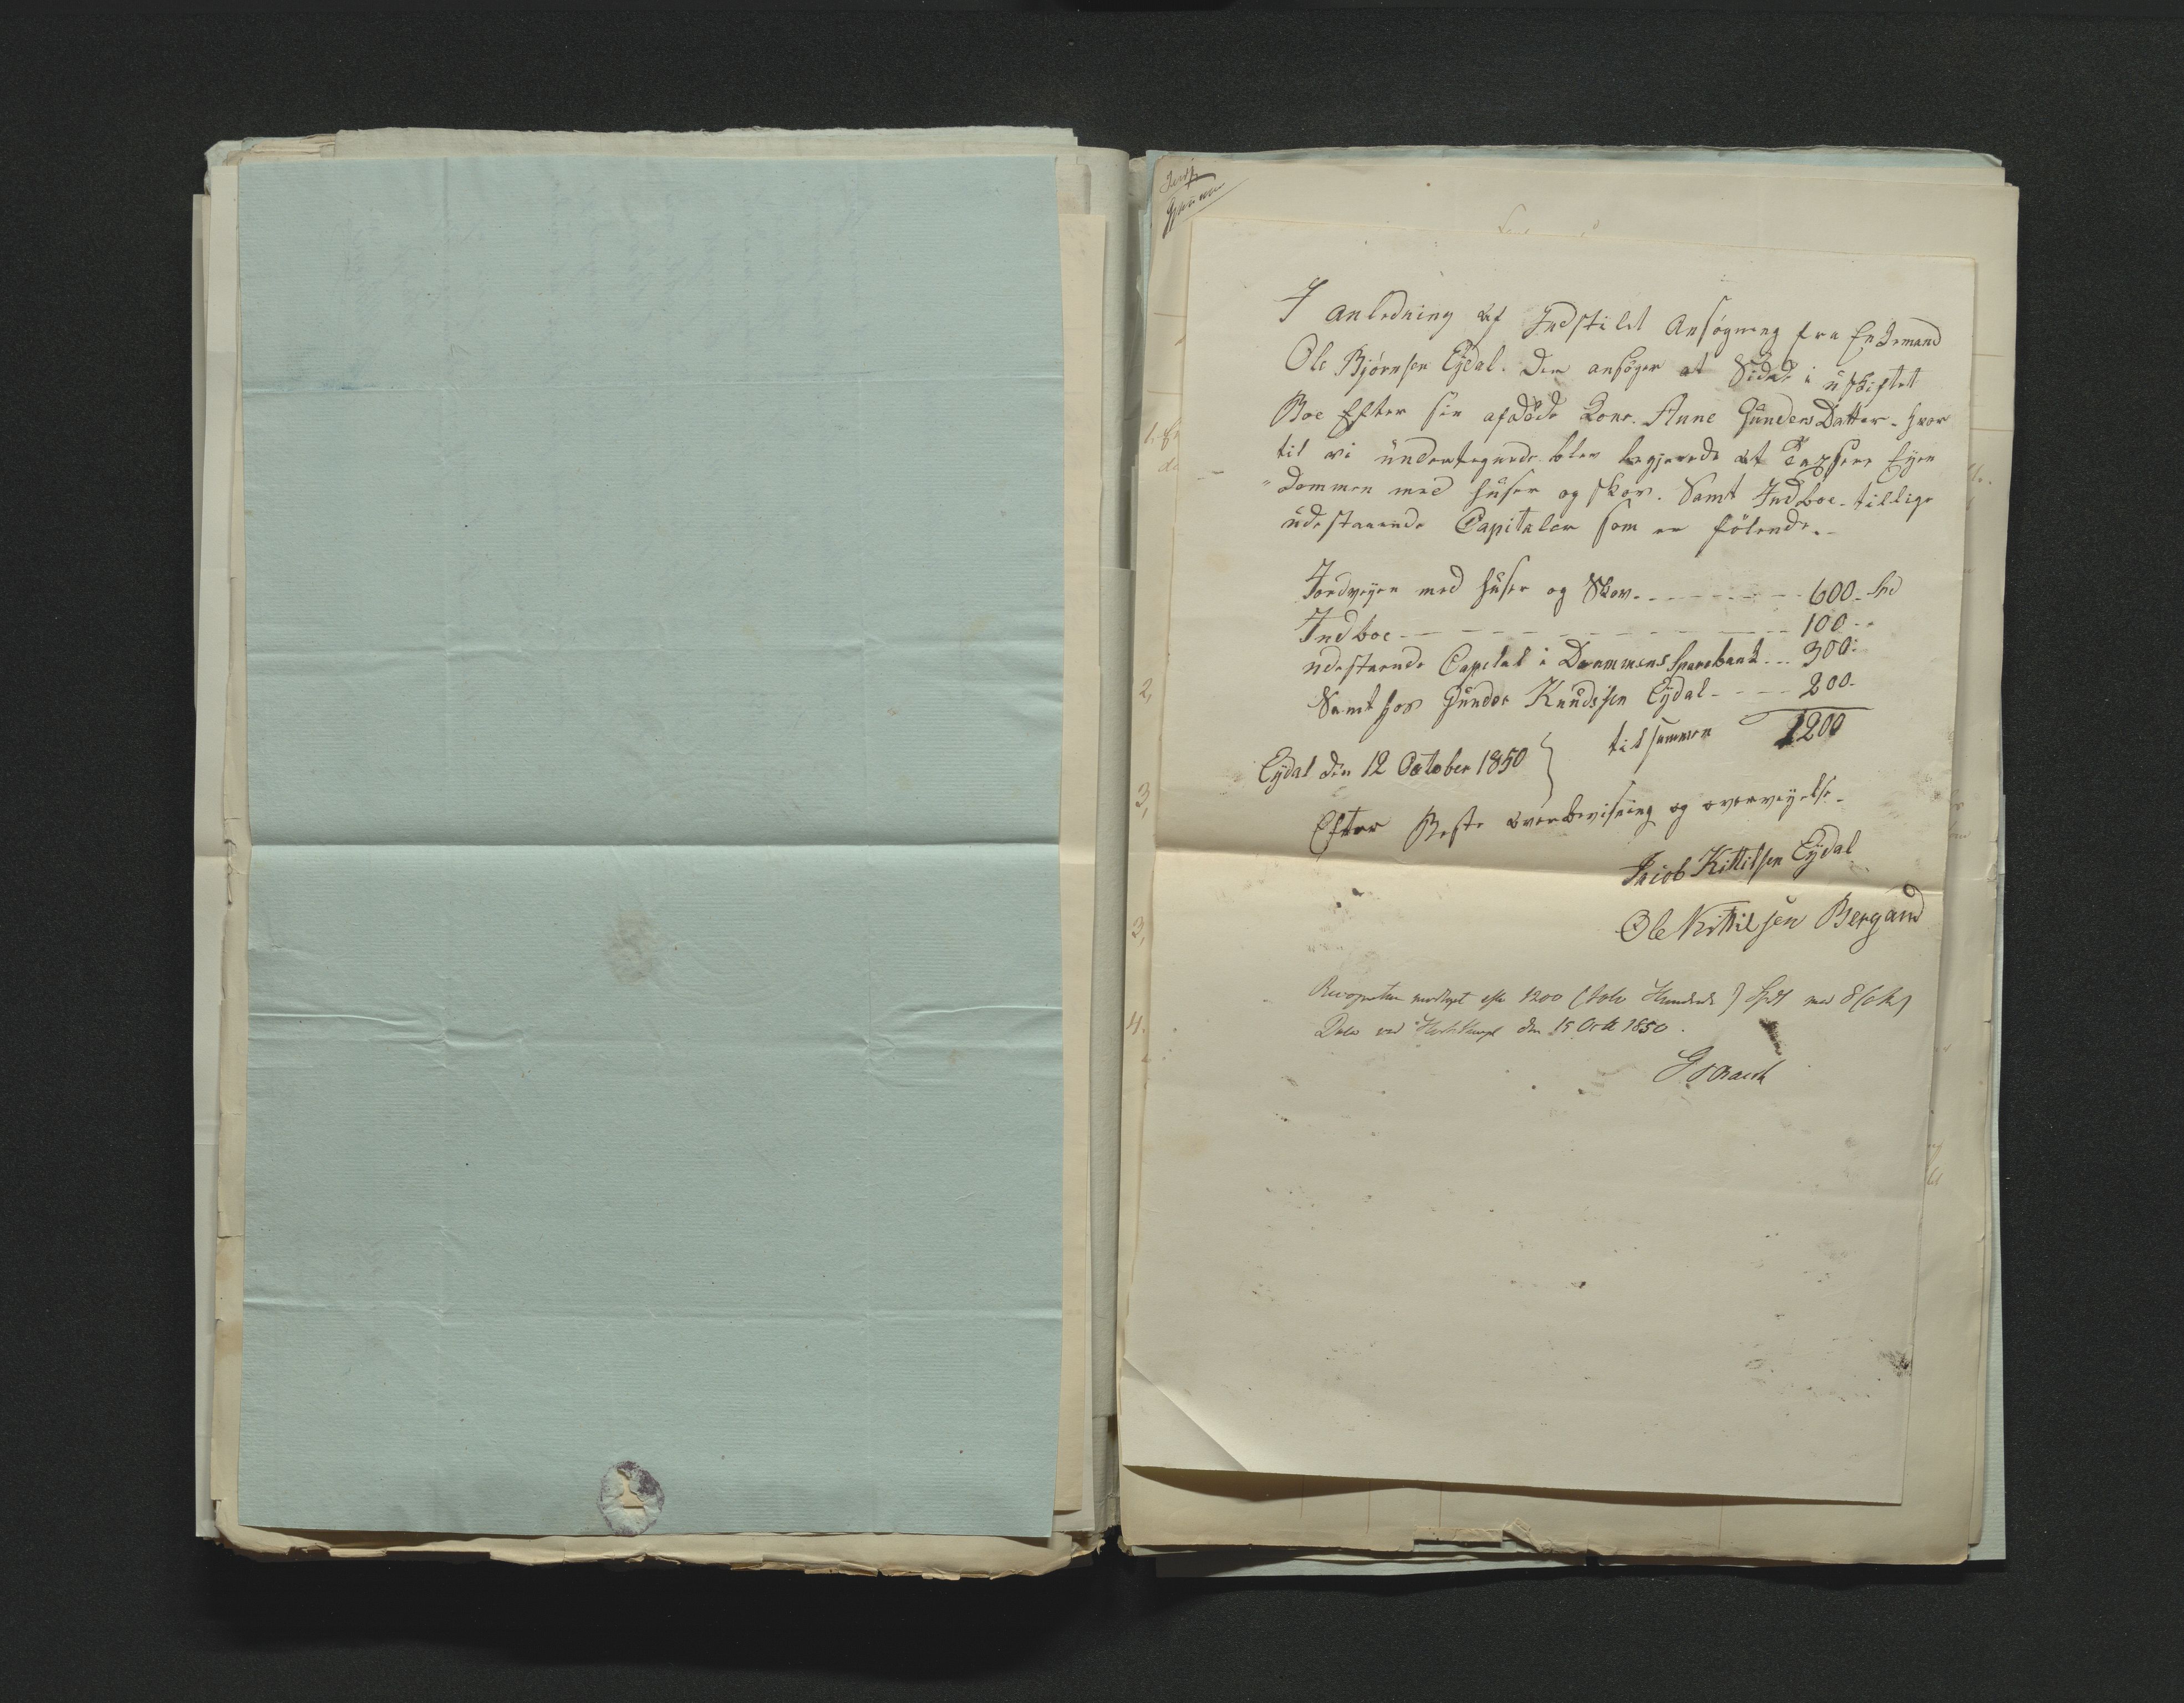 I anledning af Indstilet Ansøgning fra Enkemand
Ole Bjørnsen Eÿdal. Der ansøger at Side i uskiftet
Boe Efter sin afdöde Kone. Anne GundersDatter. hvor
til vi undertegnede blev begjerede at Taxsere Eyen
"dommen med huser og skov. Samt Indboe. tillige
udestaaende Capitaler som er fölende.-
Jordveyen med huser og Skov. 600. Spd
Indboe 100
udestaende Capital i Drammens Sparebank 300
Samt hos Gunder Knudssen Eÿdal 200
tilsammen 1200
Eÿdal den 12 October 1850
Efter Beste overbevisning og overveyelse.
Jacob Kittilsen Eÿdal
Ole Kittilsen Bergand
1200 (tolv Hundrede) Spd med
den 15 Octb 1850.
1,
2,
3,
3,
4.